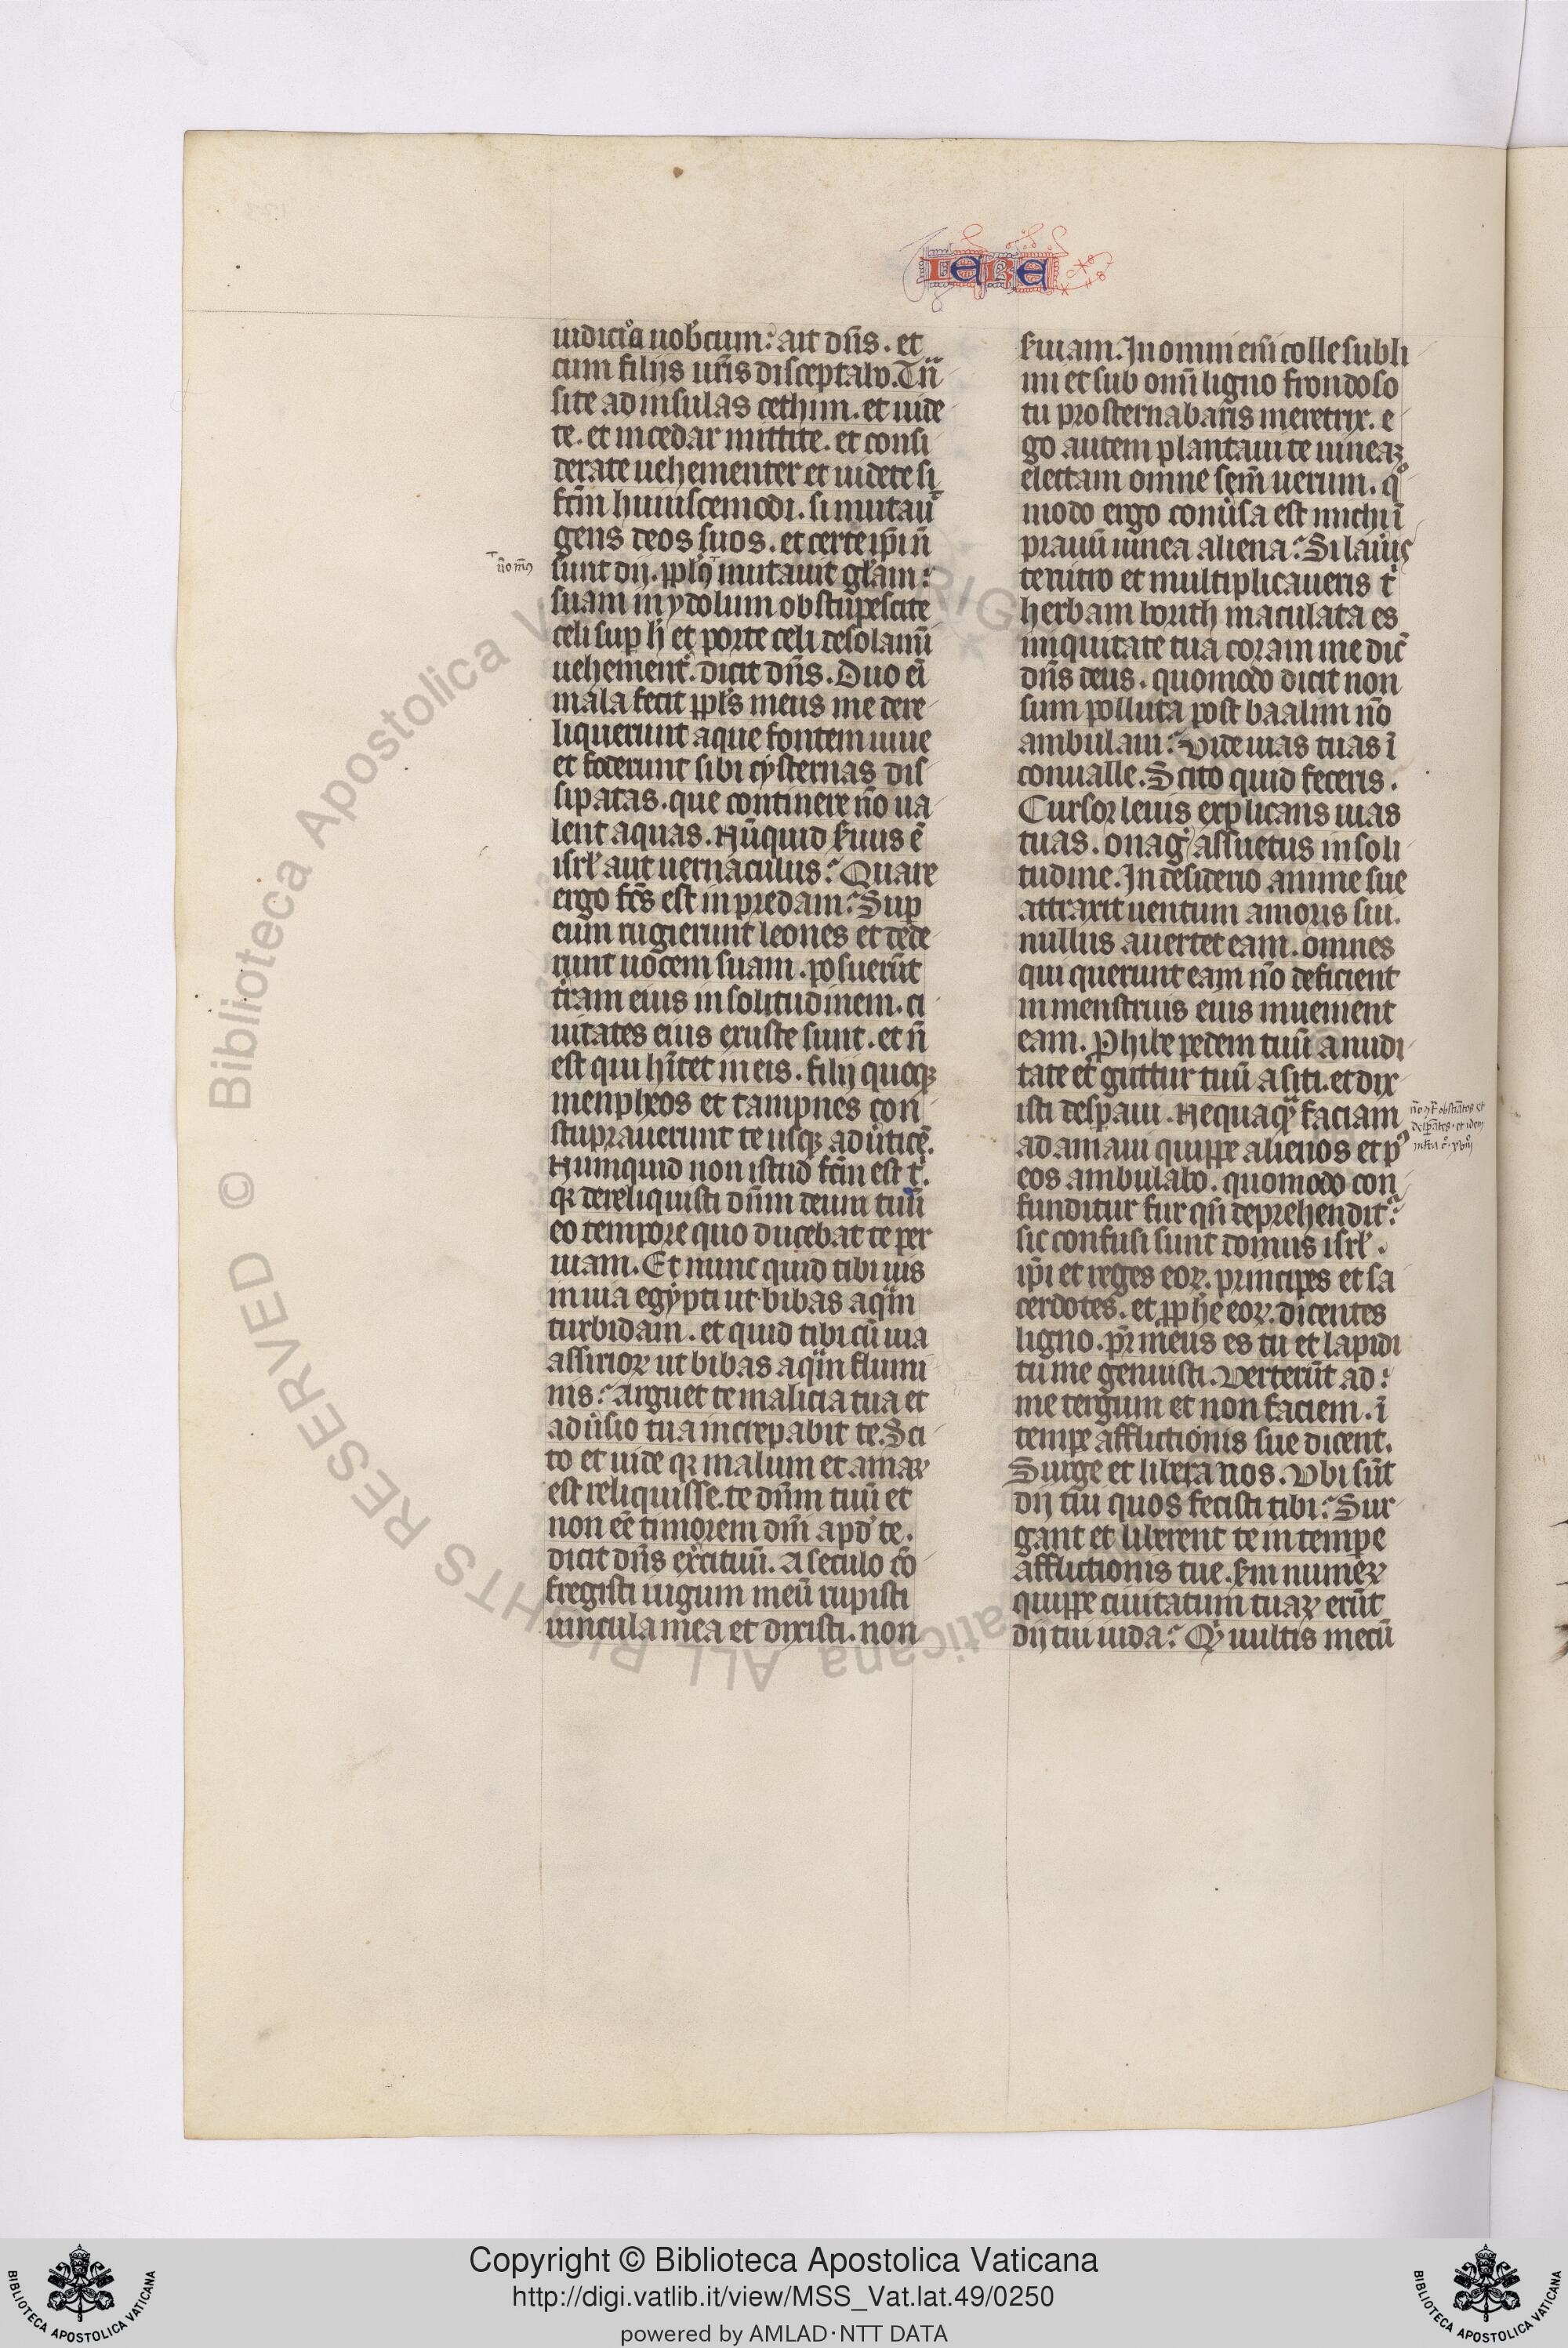 IERE
iudicio uobcum: ait dñs. et
cum filijs urīs disceptabo. Trñ
site ad insulas cethim. et uide
te. et in cedar mittite. et consi
derate uehementer et uidete si
fcm̄ huiuscemodi. si mutauͭ
gens deos suos. et certe ip̄i ñ
sunt dij. ppl's mutauit gl'am:
suam in ydolum obstupescite
celi sup h̄ et porte celi desolamī
uehement̾. dicit dñs. Duo eī
mala fecit ppl's meus me dere
liquerunt aque fontem uiue
et foderunt sibi cysternas dis
sipatas. que continere ño ua
lent aquas. Nūquid s̾uus ē
isrl' aut uernaculus: Quare
ergo fcs̄ est in predam: Sup
eum rugierunt leones et dede
runt uocem suam. posuerūt
t̾ram eius in solitudinem. ci
uitates eius exuste sunt. et ñ
est qui hītet in eis. filij quoqꝫ
menpheos et tampnes con
stuprauerunt te usqꝫ ad u̾ticē.
Numquid non istud fcm̄ est tͥ.
qꝛ dereliquisti dñm deum tuū
eo tempore quo ducebat te per
uiam. Et nunc quid tibi uis
in uia egypti ut bibas aqͣm
turbidam. et quid tibi cū uia
assirioꝝ ut bibas aqͣm flumi
nis: Arguet te malicia tua et
adu̾sio tua increpabit te. Sci
to et uide qꝛ malum et amaꝝ
est reliquisse te dñm tuū et
non eē timorem dm̄i apd' te.
dicit dñs ex̾cituū. A seculo cō
fregisti iugum meū rupisti
uincula mea et dixisti. non
s̾uiam. In omni enī colle subli
mi et sub omī ligno frondoso
tu prosternabaris meretrix. e
go autem plantaui te uineaꝫ
electam omne sem̄ uerum. qͦ
modo ergo conu̾sa est michi ī
prauū uinea aliena: Si lau̾is
te nitro et multiplicaueris tͥ
herbam borith maculata es
iniquitate tua coram me dic̄
dñs deus. quomodo dicit non
sum polluta post baalim ño
ambulaui: Vide uias tuas ī
conualle. Scito quid feceris.
Cursor leuis explicans uias
tuas. onag̾ assuetus in soli
tudine. In desiderio anime sue
attraxit uentum amoris sui.
nullus auertet eam. omnes
qui querunt eam ño deficient
in menstruis eius inuenient
eam. Phibe pedem tuū a nudi
tate et guttur tuū a siti. et dix
isti despaui. Nequaqͣ faciam
adamaui quippe alienos et pͦ
eos ambulabo. quomodo con
funditur fur qn̄ deprehendit̾:
sic confusi sunt domus isrl'.
ip̄i et reges eoꝝ. principes et sa
cerdotes. et pphe eoꝝ. dicentes
ligno. pr̄ meus es tu et lapidi
tu me genuisti. Verterūt ad:
me tergum et non faciem. ī
tempe afflictionis sue dicent.
Surge et libera nos. Vbi sūt
dij tui quos fecisti tibi: Sur
gant et liberent te in tempe
afflictionis tue. s̾m numeꝝ
quippe ciuitatum tuaꝝ erūt
dij tui iuda: Qͥ uultis mecū
Copyright © Biblioteca Apostolica Vaticana
http://digi.vatlib.it/view/MSS_Vat.lat.49/0250
powered by AMLAD·NTT DATA
BIBLIOTECA APOSTOLICA VATICANA
BIBLIOTECA APOSTOLICA VATICANA
© Biblioteca Apostolica Vaticana ALL RIGHTS RESERVED